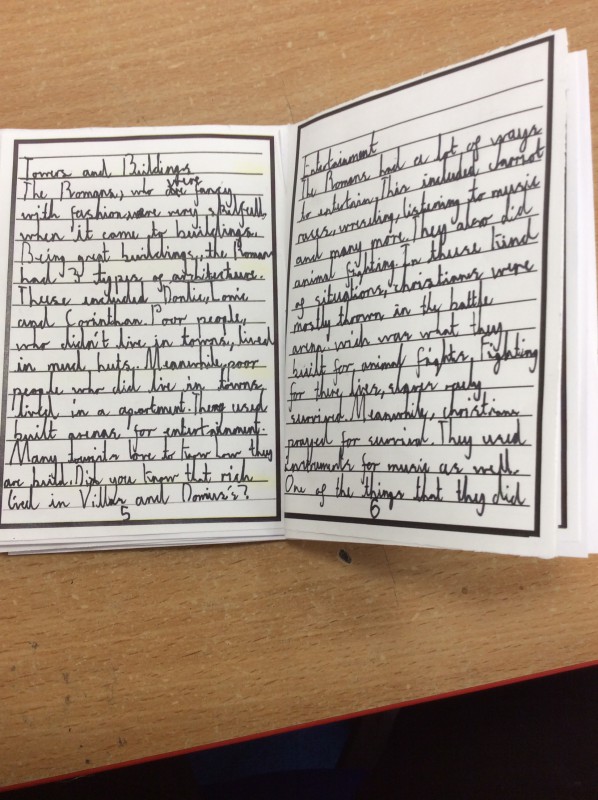 Towers and Buildings
The Romans, who were fancy
with fashion, were very skilfull
when it came to buildings.
Being great buildings, the Roman
had 3 types of architecture.
These included Donlic, Ionic
and Corinthan. Poor people,
who didn't live in towns, lived
in mud huts. Meanwhile, poor
people who did live in towns
lived in a apartment. They used
built arenas for entertainment.
Many tourists love to know how they
are build. Did you know that rich
lived in Villas and Domius's?
5
Entertainment
The Romans had a lot of ways
to entertain. This included chariot
rases, wresling, listening to music
and many more. They also did
animal fighting. In these kind
of situations, christians were
mostly thrown in the battle
arena wich was what they
built for, animal fights. Fighting
for there lives, slaves rarly
survived. Meanwhile, christians
prayed for survival. They used
instruments for music as well.
One of the things that they did
6